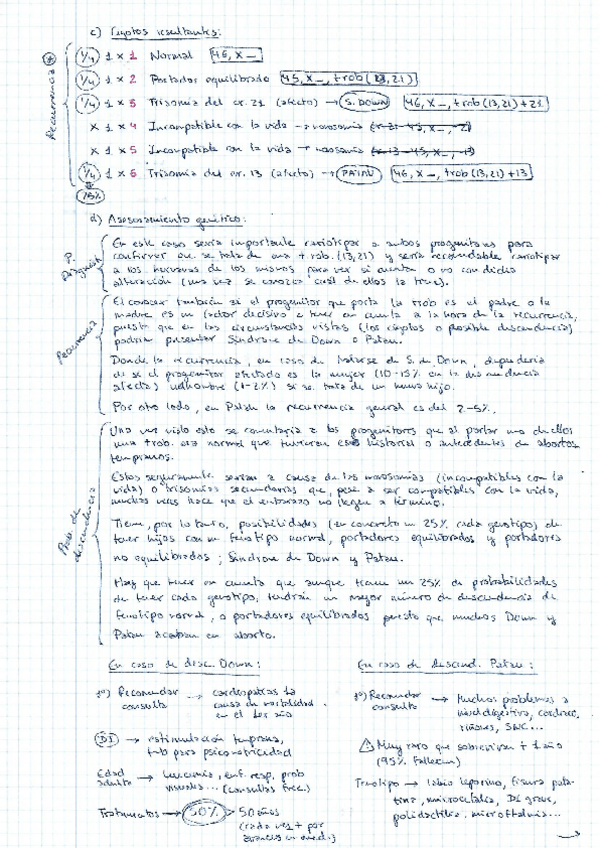 c) Cigotos resultantes:
Recurrencia *
1/4 1 x 1 Normal 46, X_
1/4 1 x 2 Portador equilibrado 45, X_, trob(13,21)
1/4 1 x 3 Trisomía del cr. 21 (afecto) → S. DOWN 46, X_, trob(13,21)+21
x 1 x 4 Incompatible con la vida → monosomía
x 1 x 5 Incompatible con la vida → monosomía
1/4 1 x 6 Trisomía del cr. 13 (afecto) → PATAU 46, X_, trob(13,21)+13
25%
d) Asesoramiento genético:
En este caso sería importante cariotipar a ambos progenitores para
confirmar que se trata de una trob. (13,21) y sería recomendable cariotipar
a los hermanos de los mismos para ver si cuenta o no con dicha
alteración (una vez se conozca cuál de ellos la tiene).
Recurrencia
El conocer también si el progenitor que porta la trob es el padre o la
madre es un factor decisivo a tener en cuenta a la hora de la recurrencia,
puesto que en las circunstancias vistas (los cigotos o posible descendencia)
podrían presentar Síndrome de Down o Patau.
Donde la recurrencia, en caso de tratarse de S. de Down, dependería
de si el progenitor afectado es la mujer (10-15% en la descendencia
afecta) u el hombre (1-2%) si se trata de un nuevo hijo.
Por otro lado, en Patau la recurrencia general es del 2-5%.
Prob. de descendencia
Una vez visto esto se comentaría a los progenitores que al portar uno de ellos
una trob. era normal que tuvieran ese historial o antecedentes de abortos
tempranos.
Estos seguramente serían a causa de las monosomías (incompatibles con la
vida) o trisomías secundarias que, pese a ser compatibles con la vida,
muchas veces hace que el embarazo no llegue a término.
Tiene, por lo tanto, posibilidades (en concreto un 25% cada genotipo) de
tener hijos con un fenotipo normal, portadores equilibrados y portadores
no equilibrados; Síndrome de Down y Patau.
Hay que tener en cuenta que aunque tienen un 25% de probabilidades
de tener cada genotipo, tendrán un mayor número de descendencia de
fenotipo normal, o portadores equilibrados puesto que muchos Down y
Patau acaban en aborto.
En caso de desc. Down:
1º) Recomendar consulta → cardiopatías 1ª
causa de mortalidad
en el 1er año
DI → estimulación temprana,
tmb para psicomotricidad
Edad adulta → leucemia, enf. resp, prob
visuales... (consultas frec.)
Tratamientos → 50% > 50 años
(cada vez + por
avances en med.)
En caso de descend. Patau:
1º) Recomendar consulta → Muchos problemas a
nivel digestivo, cardíaco,
riñones, SNC...
⚠ Muy raro que sobrevivan + 1 año
(95% fallecen)
Fenotipo → labio leporino, fisura pala-
tina, microcefalia, DI grave,
polidactilia, microftalmia...